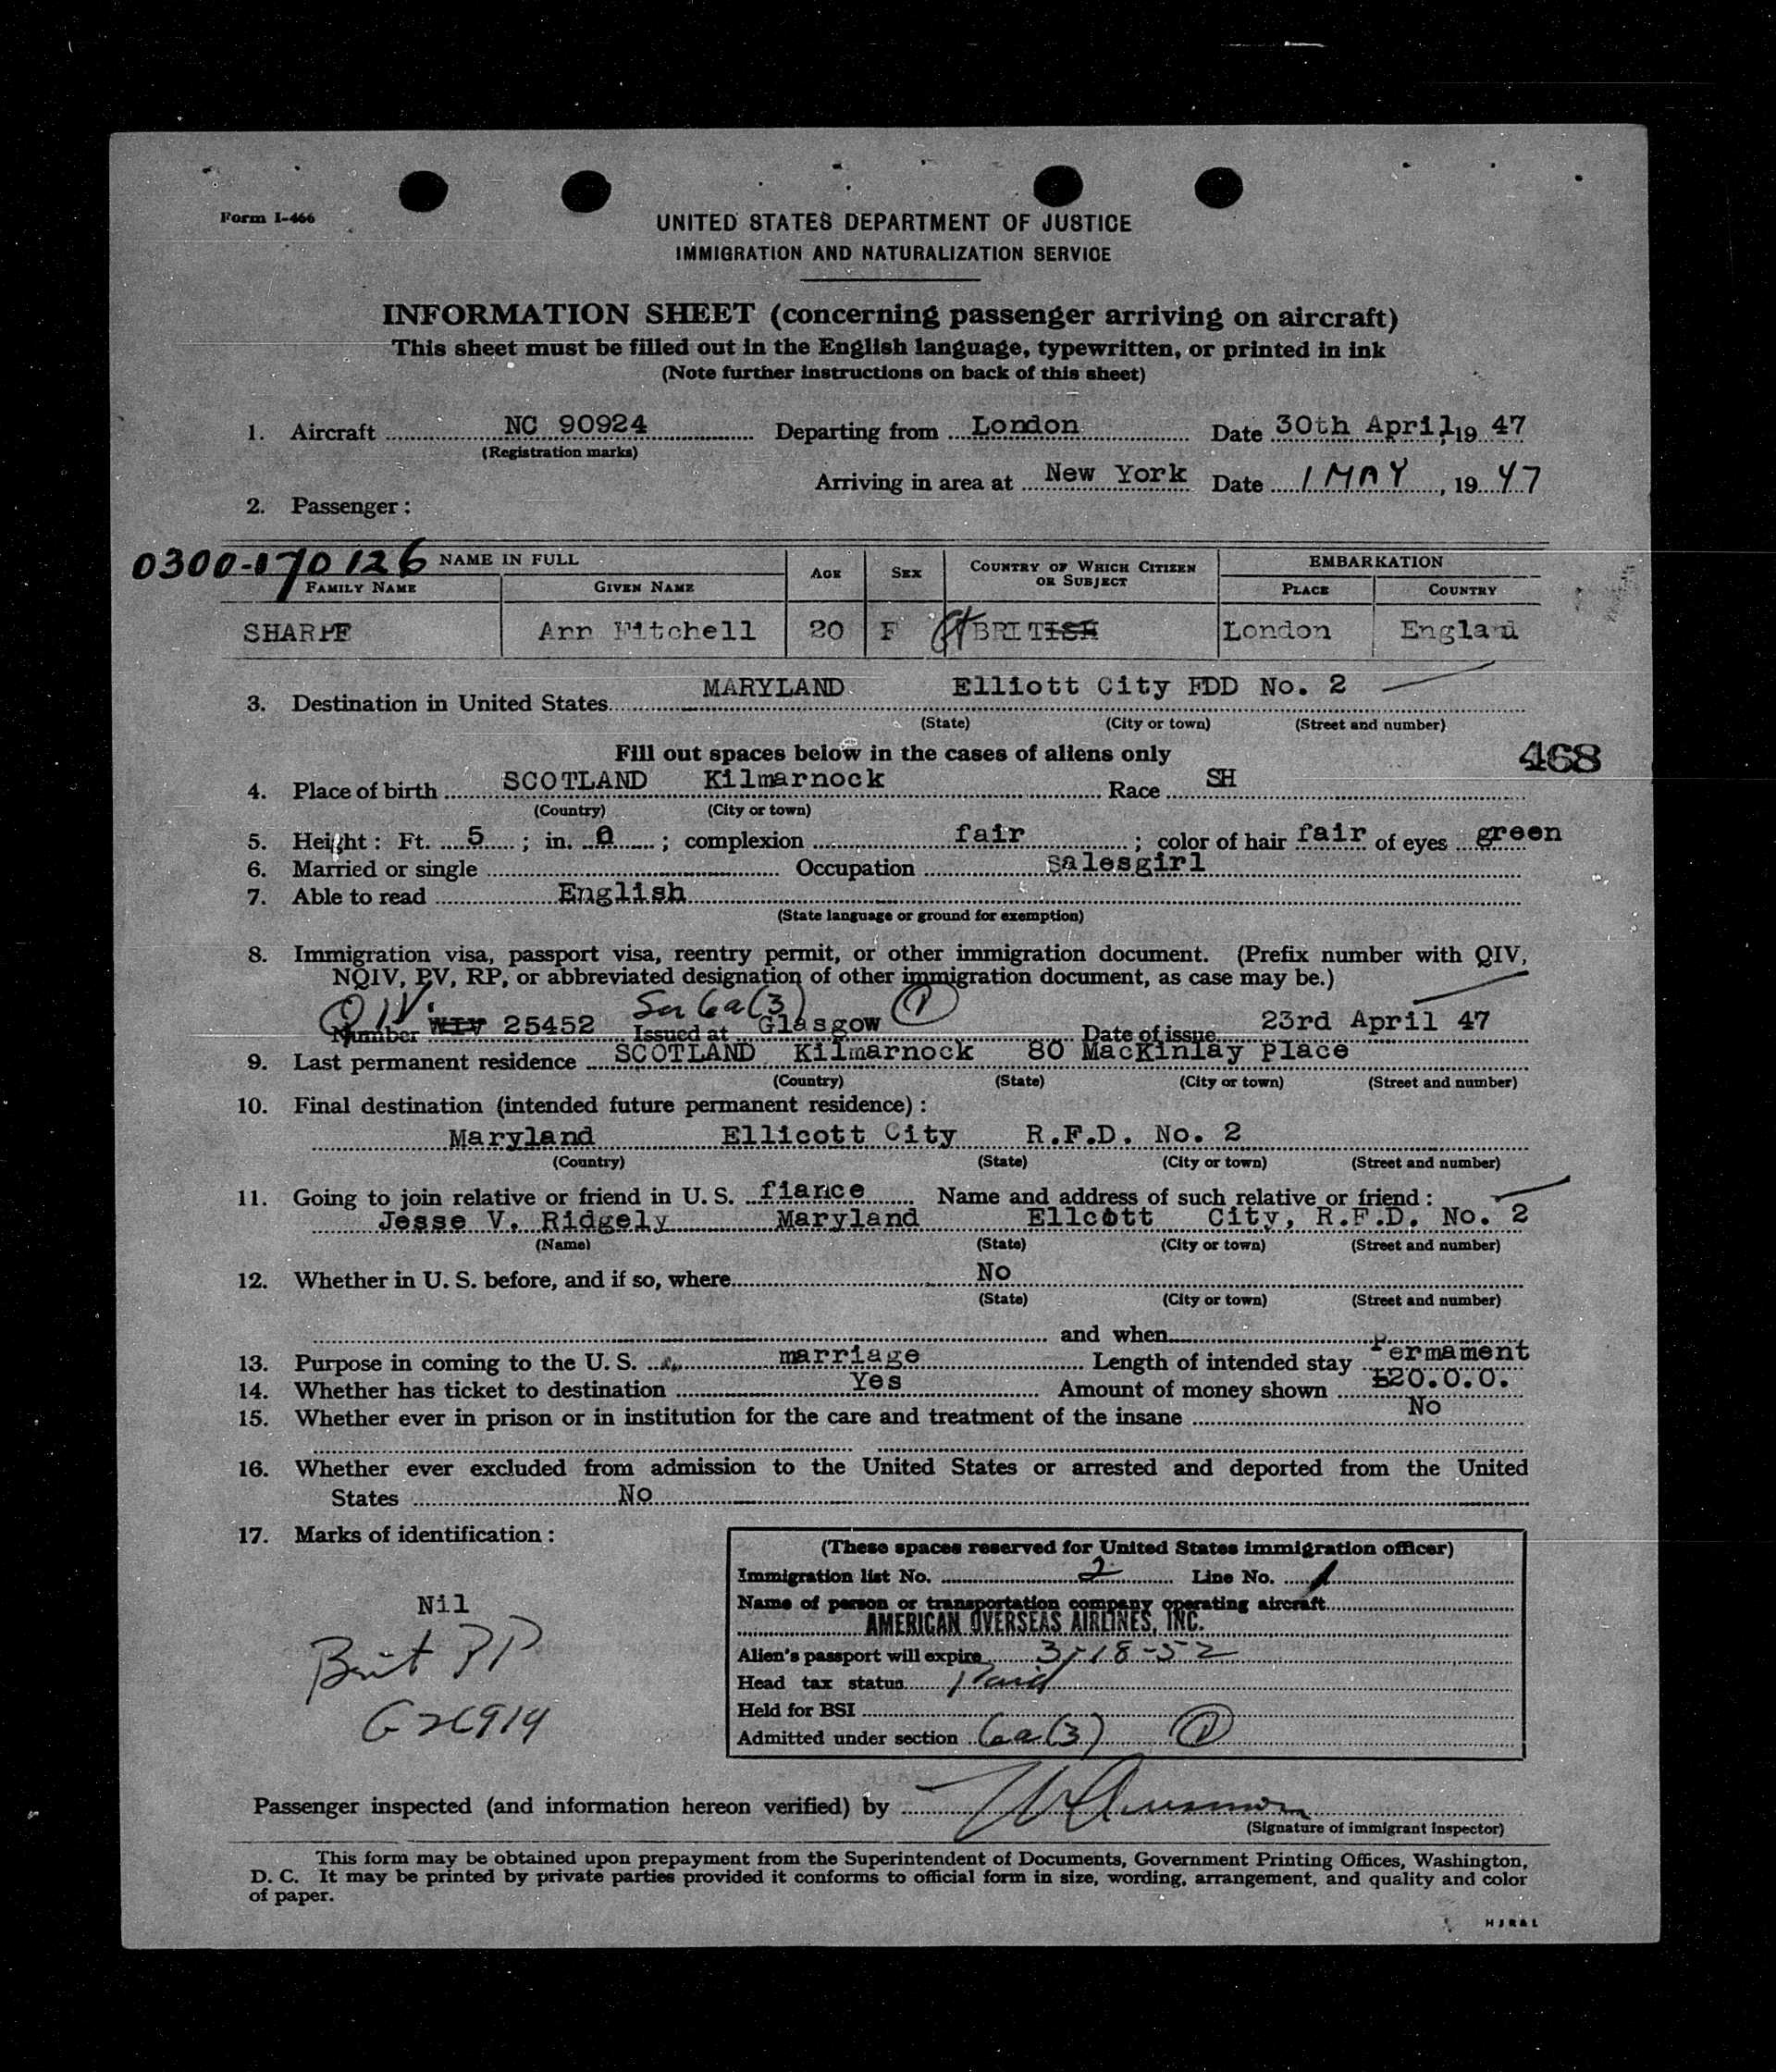 Form I-466
UNITED STATES DEPARTMENT OF JUSTICE
IMMIGRATION AND NATURALIZATION SERVICE
INFORMATION SHEET (concerning passenger arriving on aircraft)
This sheet must be filled out in the English language, typewritten, or printed in ink
(Note further instructions on back of this sheet)
1. Aircraft NC 90924 Departing from London Date 30th April, 19 47
(Registration marks)
Arriving in area at New York Date 1 MAY, 19 47
2. Passenger:
0300-170126 NAME IN FULL AGE SEX COUNTRY OF WHICH CITIZEN OR SUBJECT EMBARKATION
FAMILY NAME GIVEN NAME PLACE COUNTRY
SHARPE Ann Mitchell 20 F BRITISH London England
3. Destination in United States MARYLAND Elliott City FDD No. 2
(State) (City or town) (Street and number)
Fill out spaces below in the cases of aliens only
468
4. Place of birth SCOTLAND Kilmarnock Race SH
(Country) (City or town)
5. Height: Ft. 5; in. 0; complexion fair; color of hair fair of eyes green
6. Married or single Occupation salesgirl
7. Able to read English
(State language or ground for exemption)
8. Immigration visa, passport visa, reentry permit, or other immigration document. (Prefix number with QIV,
NQIV, PV, RP, or abbreviated designation of other immigration document, as case may be.)
QIV. 6a(3) 1
Number WIV 25452 Issued at Glasgow Date of issue 23rd April 47
9. Last permanent residence SCOTLAND Kilmarnock 80 MacKinlay Place
(Country) (State) (City or town) (Street and number)
10. Final destination (intended future permanent residence):
Maryland Ellicott City R.F.D. No. 2
(Country) (State) (City or town) (Street and number)
11. Going to join relative or friend in U. S. fiance Name and address of such relative or friend:
Jesse V. Ridgely Maryland Ellcott City, R.F.D. No. 2
(Name) (State) (City or town) (Street and number)
12. Whether in U. S. before, and if so, where No
(State) (City or town) (Street and number)
and when
13. Purpose in coming to the U. S. marriage Length of intended stay Permament
14. Whether has ticket to destination Yes Amount of money shown £20.0.0.
15. Whether ever in prison or in institution for the care and treatment of the insane No
16. Whether ever excluded from admission to the United States or arrested and deported from the United
States No
17. Marks of identification:
Nil
Brit PP
G26914
(These spaces reserved for United States immigration officer)
Immigration list No. 2 Line No. 1
Name of person or transportation company operating aircraft
AMERICAN OVERSEAS AIRLINES, INC.
Alien's passport will expire 3-18-52
Head tax status Paid
Held for BSI
Admitted under section 6a(3) 1
Passenger inspected (and information hereon verified) by
(Signature of immigrant inspector)
This form may be obtained upon prepayment from the Superintendent of Documents, Government Printing Offices, Washington,
D. C. It may be printed by private parties provided it conforms to official form in size, wording, arrangement, and quality and color
of paper.
HJR&L